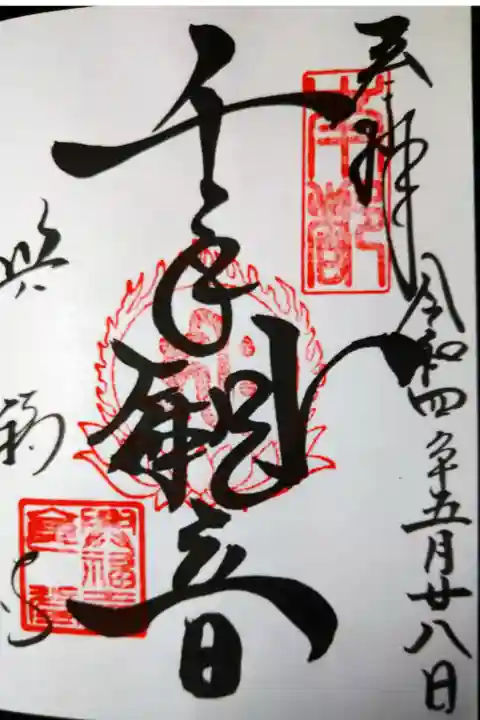 奉拝
令和四年五月廿八日
千手観音
興福寺